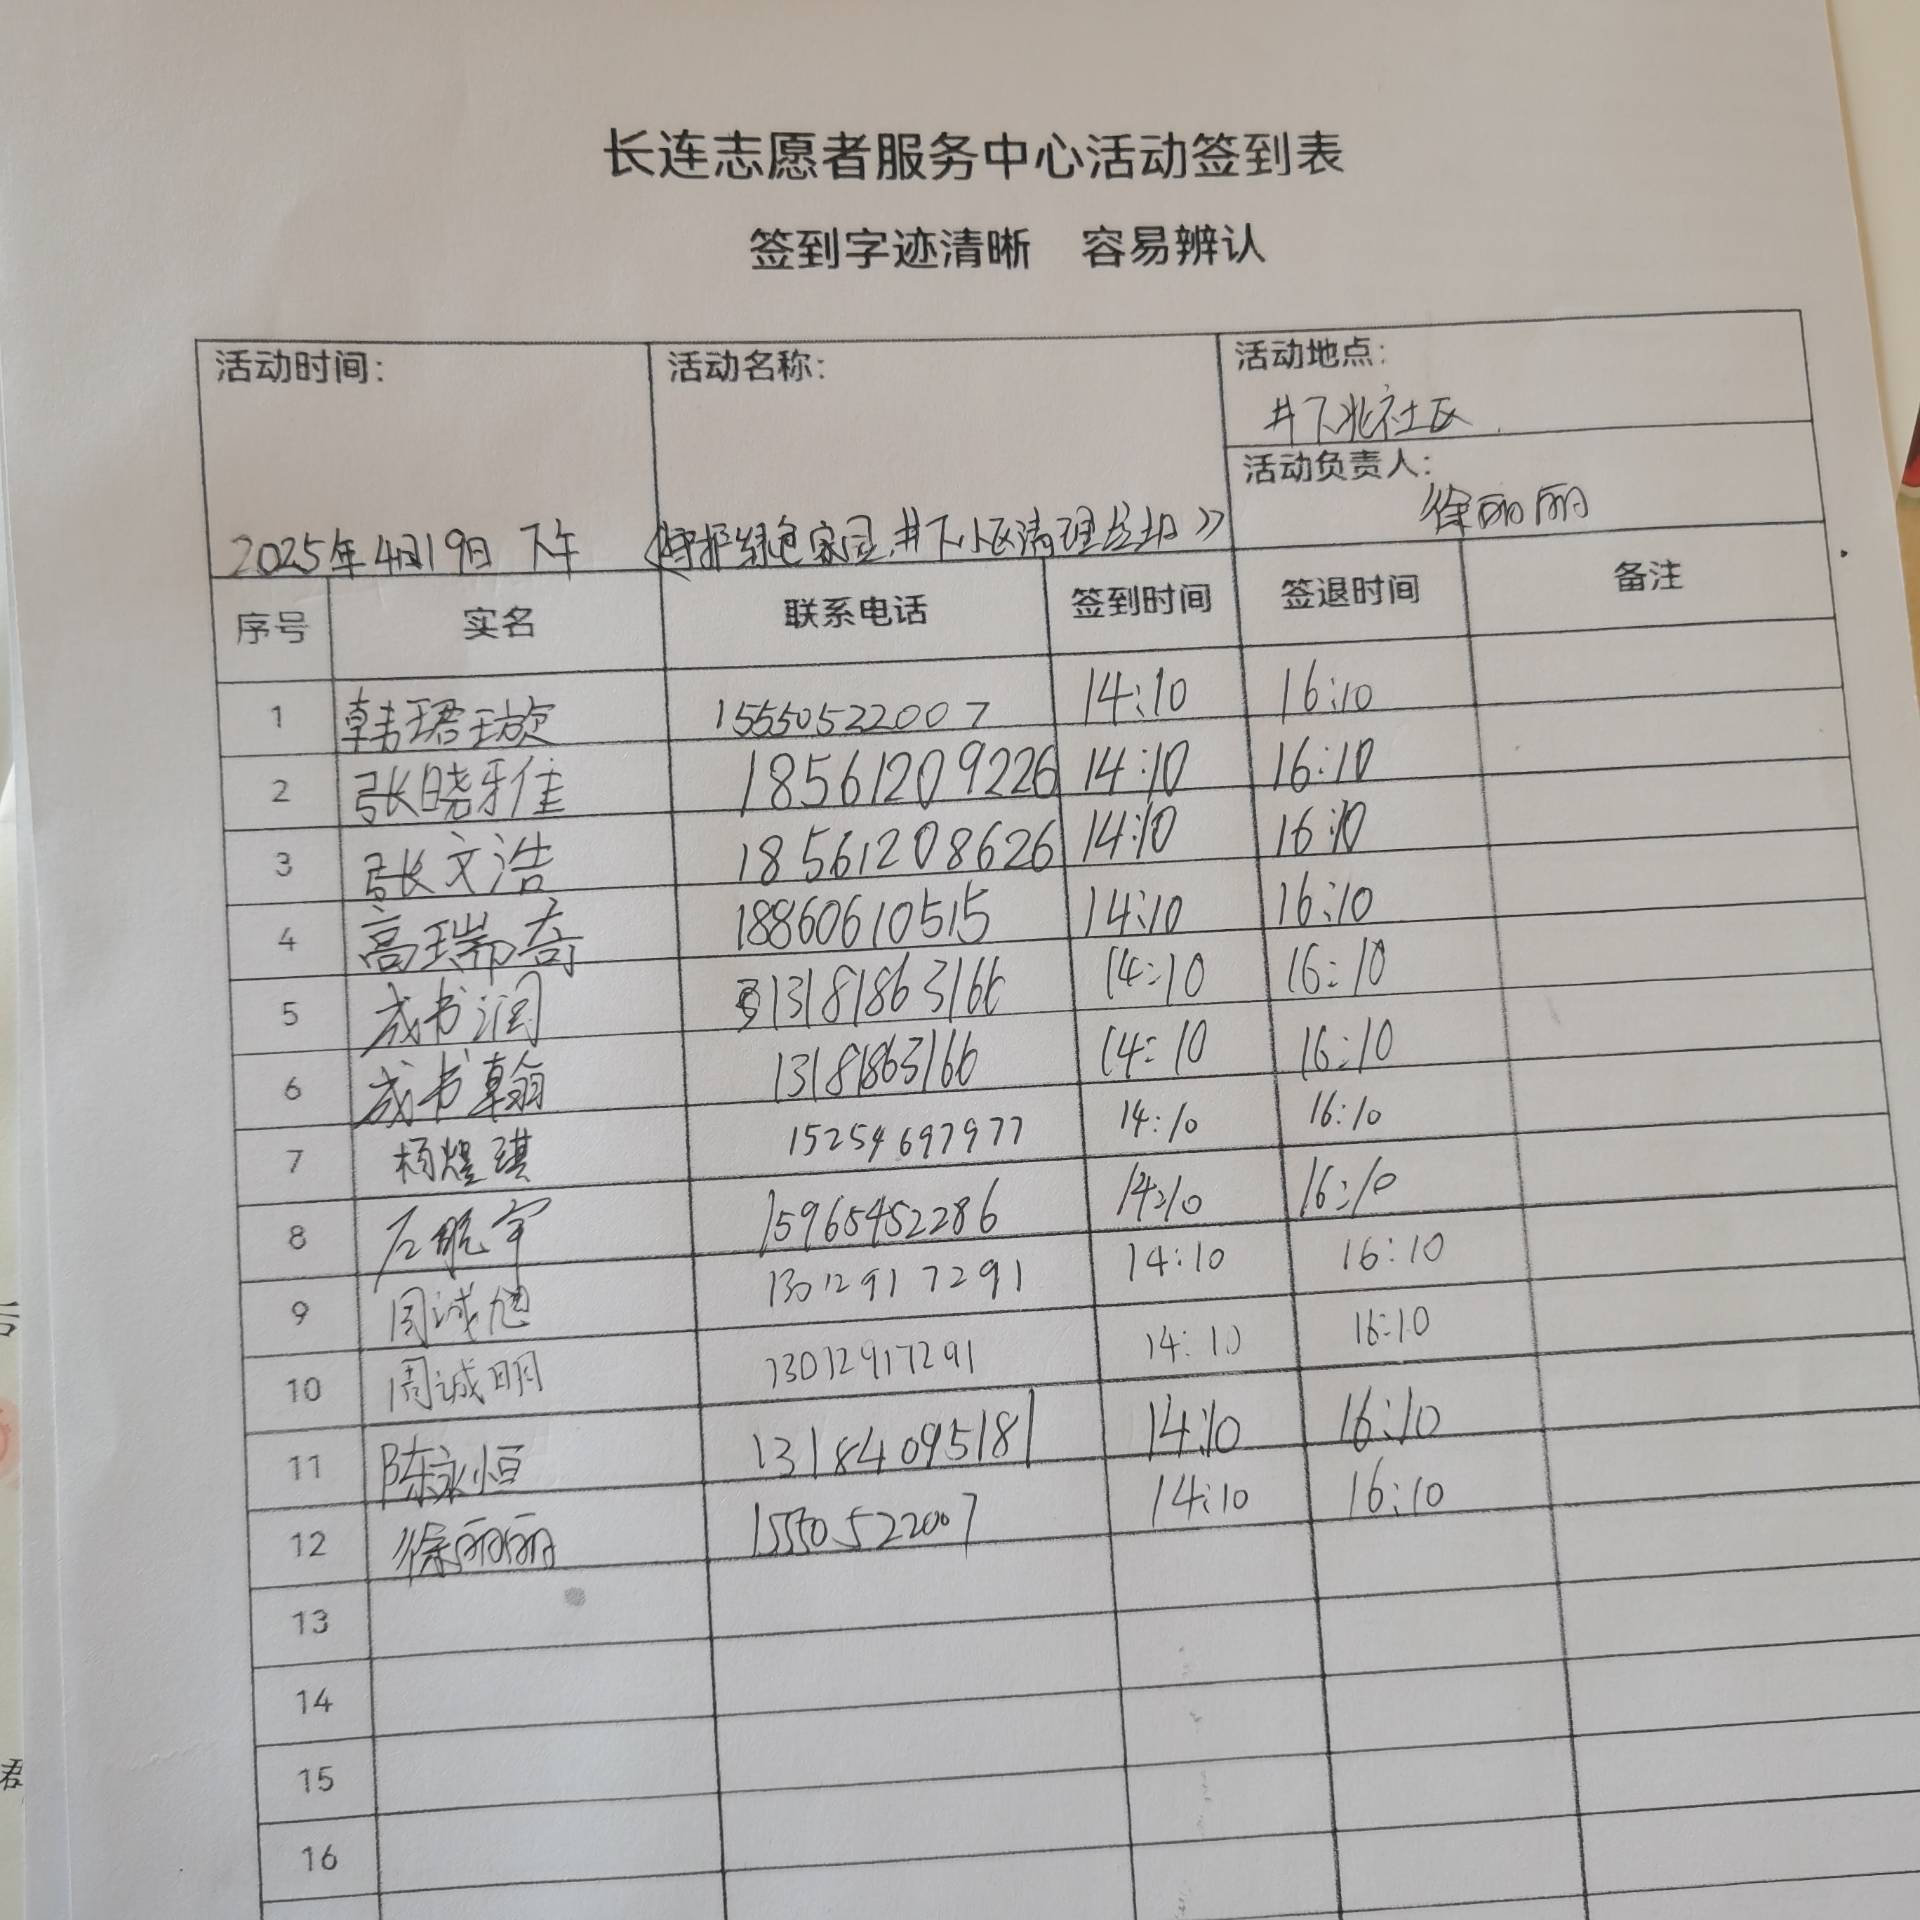 长连志愿者服务中心活动签到表
签到字迹清晰 容易辨认
活动时间: 2025年4月19日 下午
活动名称: 《守护绿色家园,井下小区清理垃圾》
活动地点: 井下北社区
活动负责人: 徐丽丽
序号 实名 联系电话 签到时间 签退时间 备注
1 韩珺璇 15550522007 14:10 16:10
2 张晓雅 18561209226 14:10 16:10
3 张文浩 18561208626 14:10 16:10
4 高瑞奇 18860610515 14:10 16:10
5 成书润 13181863166 14:10 16:10
6 成书翰 13181863166 14:10 16:10
7 杨煜琪 15254697977 14:10 16:10
8 石航宇 15965452286 14:10 16:10
9 周诚旭 13012917291 14:10 16:10
10 周诚明 13012917291 14:10 16:10
11 陈永恒 13184095181 14:10 16:10
12 徐丽丽 15550522007 14:10 16:10
13
14
15
16